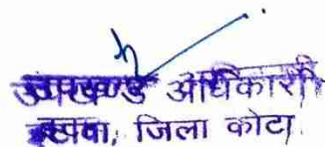 उपखण्ड अधिकारी
जिला कोटा